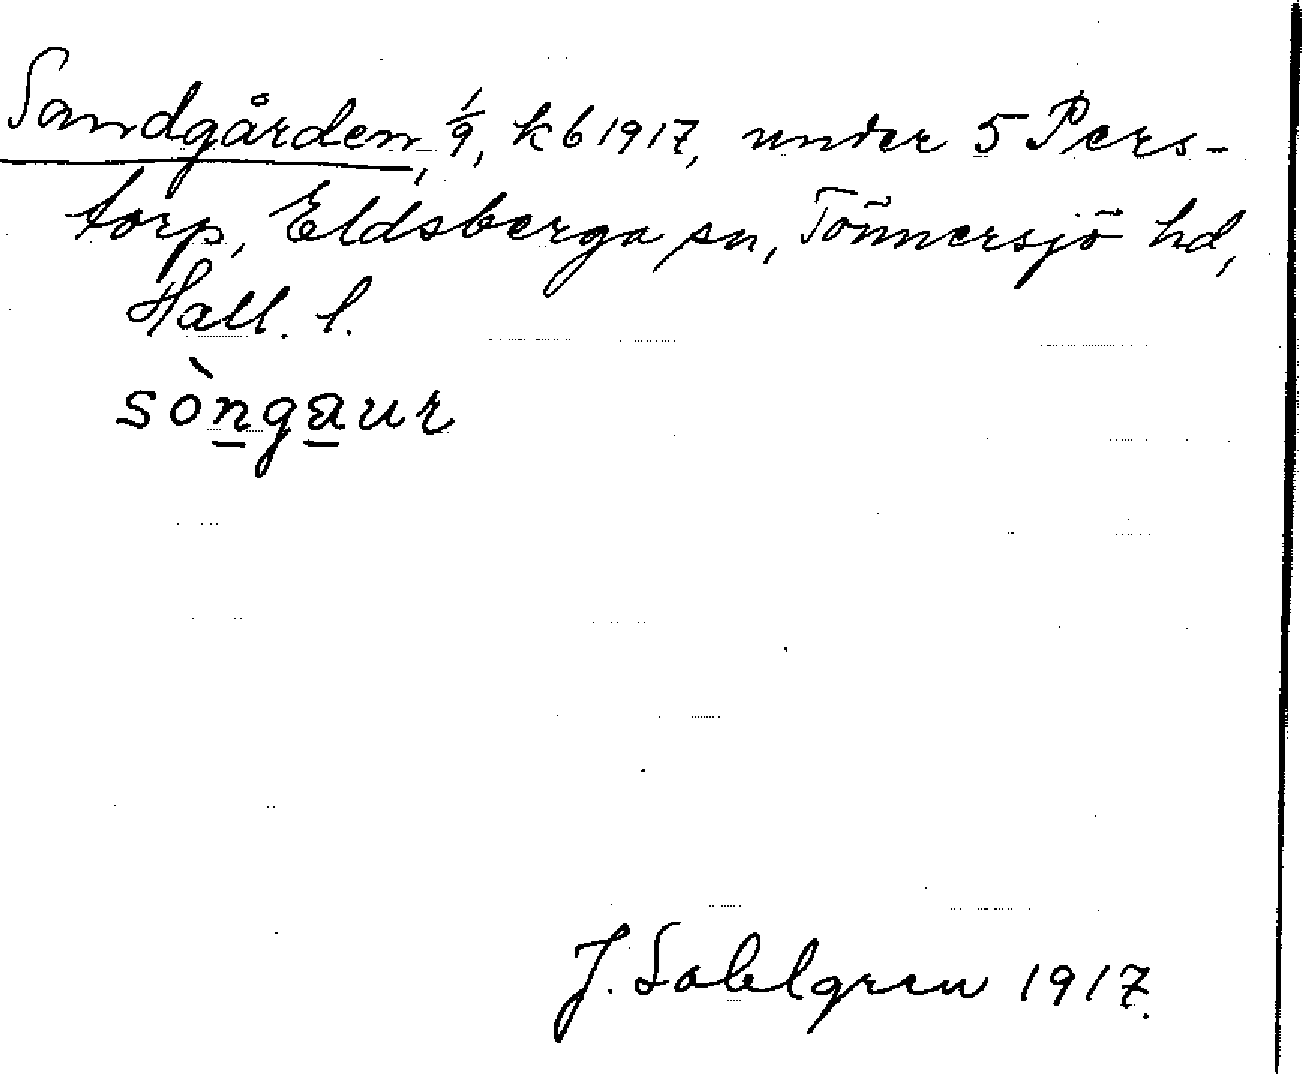 Sandgården, 1/9, kb 1917, under 5 Pers-
torp, Eldsberga sn, Tönnersjö hd,
Hall. l.
sòngaur
J. Sahlgren 1917.